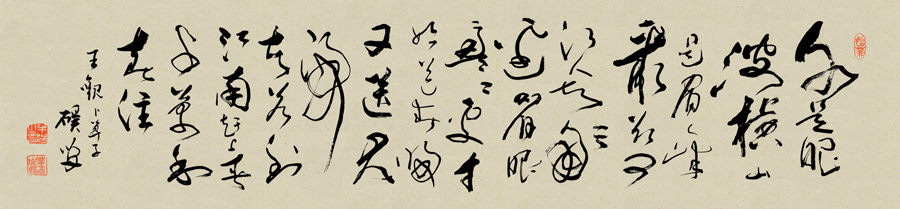 水是眼
波横山
是眉峰
聚欲問
行人去那
邊眉眼
盈盈處才
始送春歸
又送君
歸
去若到
江南趕上春
千萬和
春住
王觀卜算子